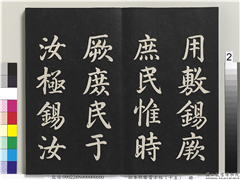 用敷錫厥
庶民惟時
厥庶民于
汝極錫汝
2